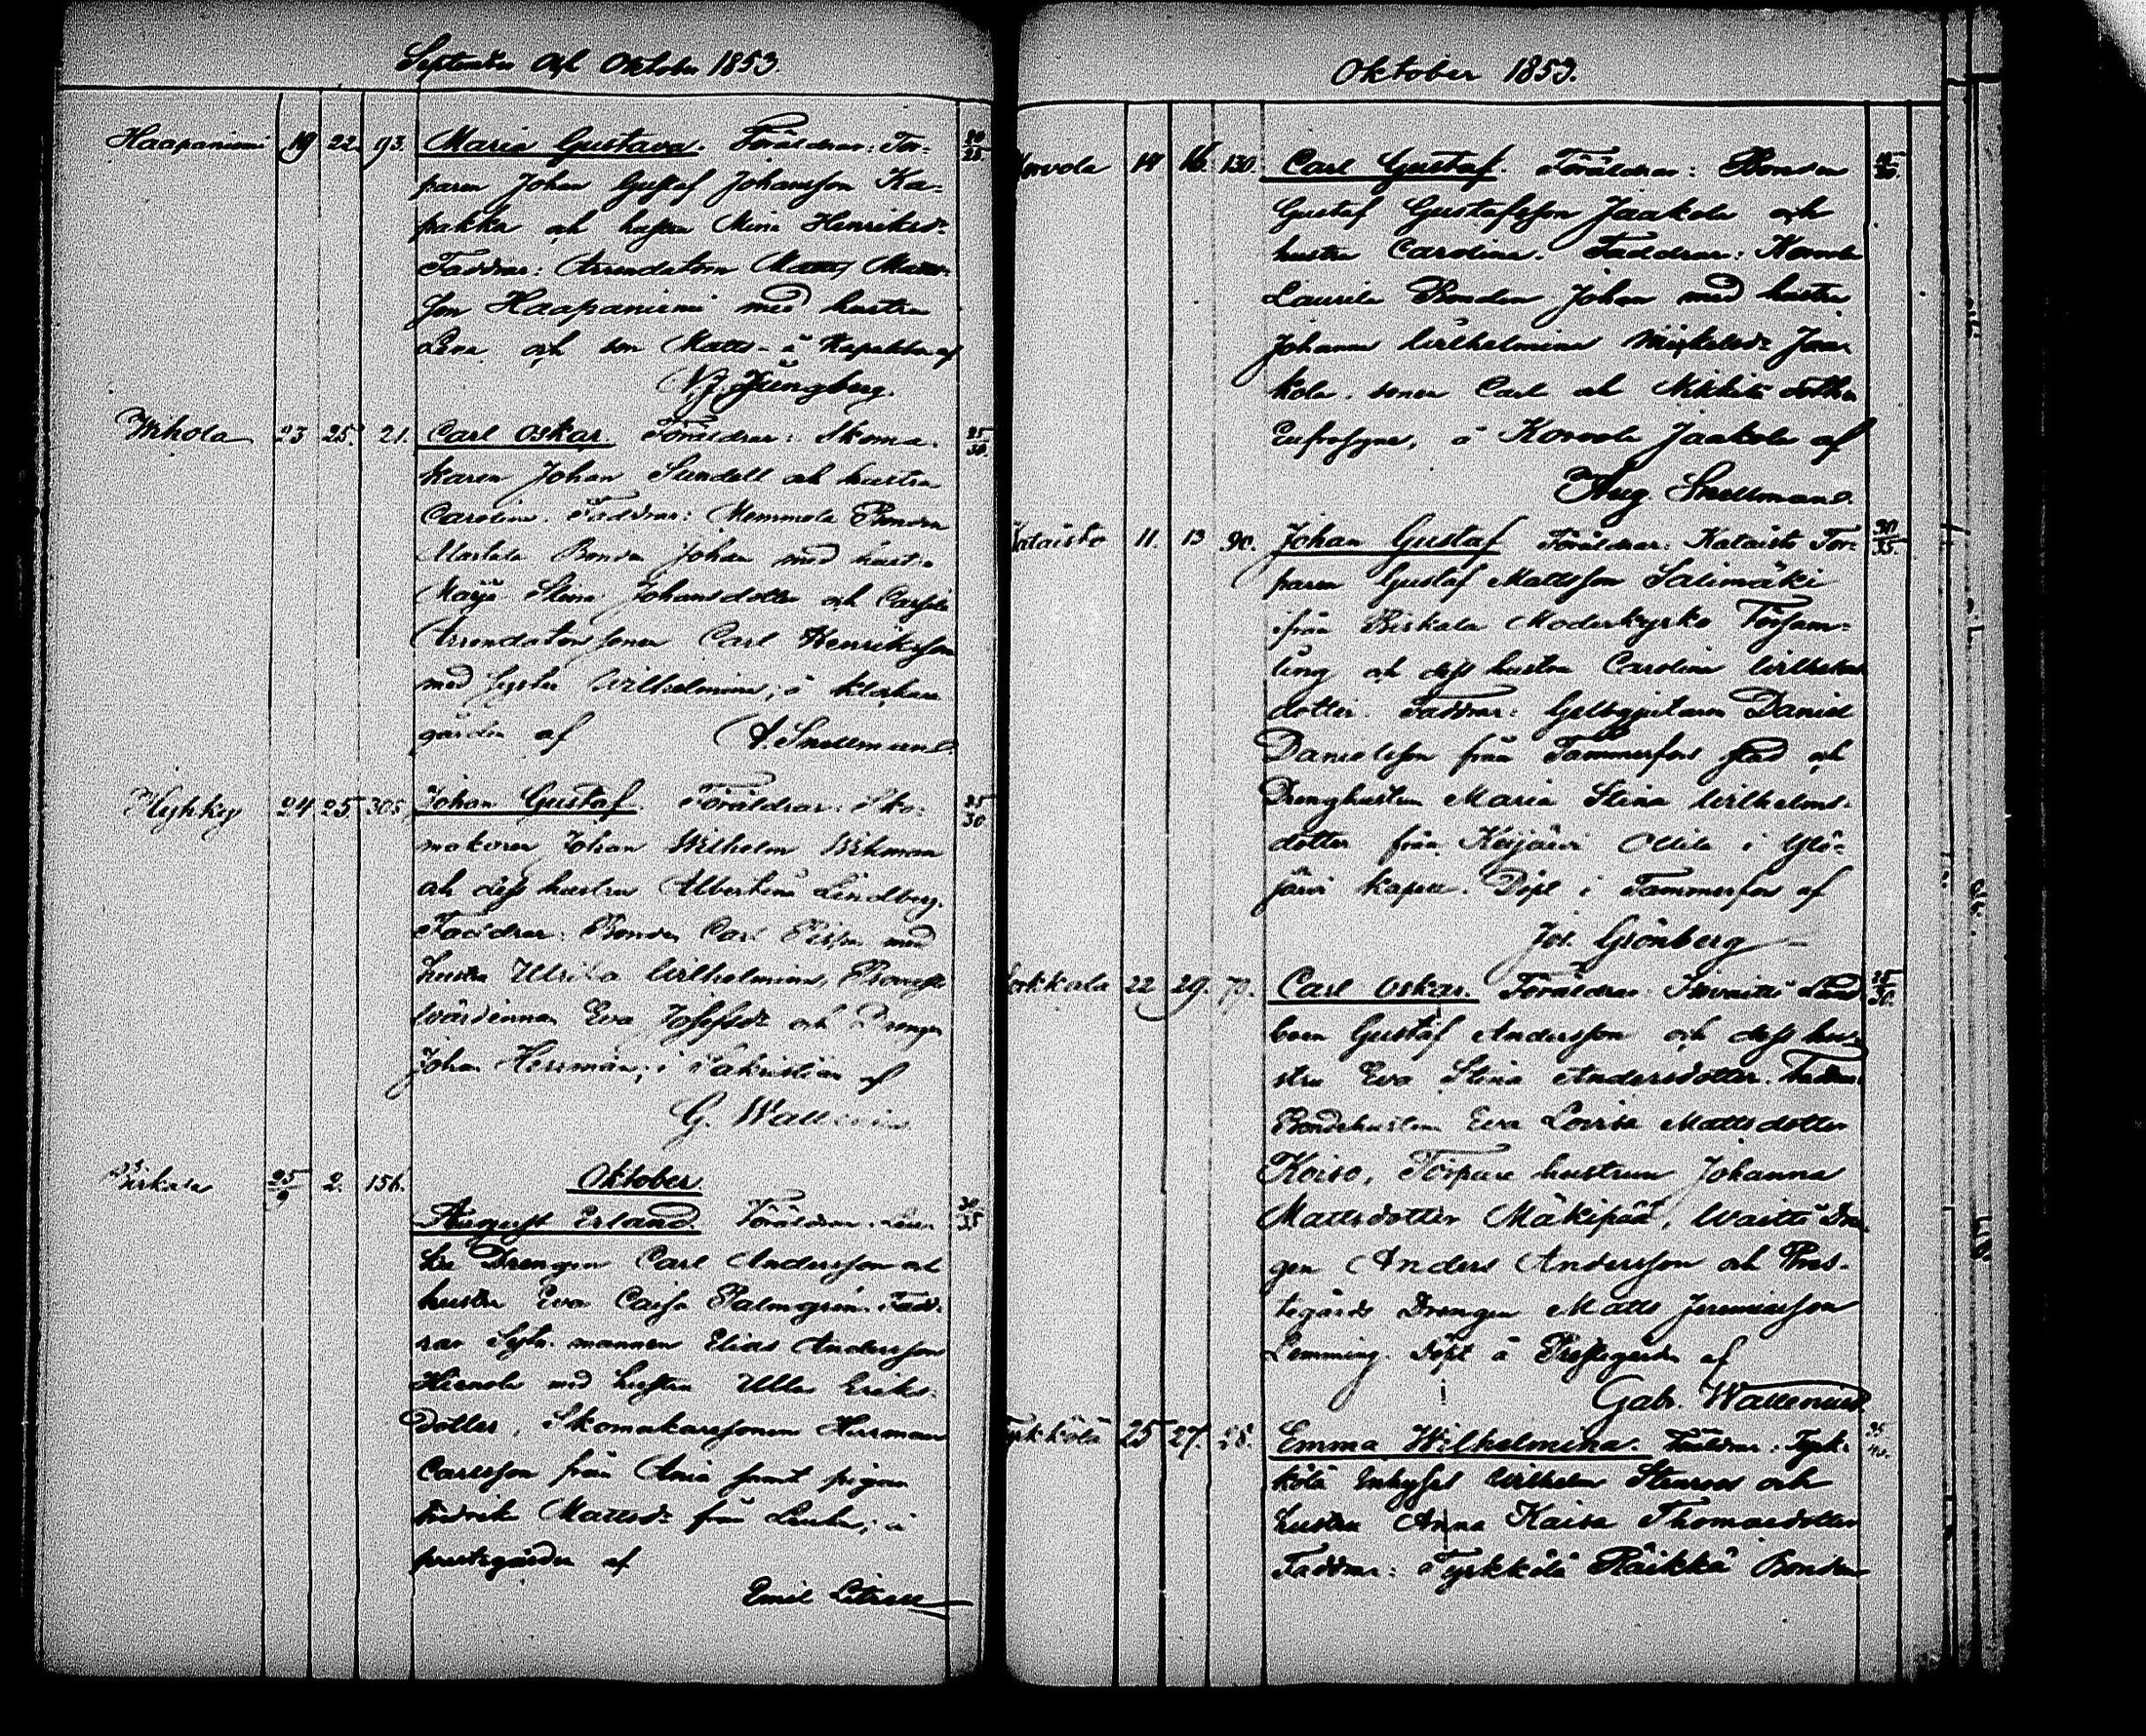 September och Oktober 1853.
Haapaniemi 19 22. 93. Maria Gustava. Föräldrar: Tor- 20/25
paren Johan Gustaf Johansson Ka-
pakka och hustru Mina Henriksdr
Faddrar: Arrendatorn Matts Matts-
son Haapaniemi med hustru
Lena och son Matts - å Kapakka af
Ljungberg.
23 25. 21. Carl Oskar Föräldrar: Skoma- 25/30
karen Johan Sundell och hustru
Carolina. Faddrar: Bonden
Bonden Johan med hustru
Maja Stina Johansdotter och
Arrendatorssonen Carl Henriksson
med syster Wilhelmina, i klockare
gården af A. Snellman
Hyhky 24 25. 305 Johan Gustaf. Föräldrar: Sko- 25/30
makaren Johan Wilhelm Wikman
och dess hustru Albertina Lindberg.
Faddrar: Bonden Carl med
hustru Ulrika Wilhelmina,
wärdinnan Eva Josefsdr och Drengen
Johan Herrman, i Sakristian af
G. Wallenius
Birkala 25/9 2. 156. Oktober
August Erland. Föräldrar: 30/35
Drengen Carl Andersson och
hustru Eva Caisa Palmgren. Fadd-
rar mannen Elias Andersson
med hustru Ulla Eriks-
dotter, Skomakaressonen Herrman
Carlsson från Ania samt pigan
Fredrika Mattsdr från
prestgården af
Emil
Oktober 1853.
18 16. 130. Carl Gustaf. Föräldrar: Bonden
Gustaf Gustafsson Jaakola och
hustru Carolina. Faddrar: Korvola
Laurila Bonden Johan med hustru
Johanna Wilhelmina Mickelsdr Jaa-
kola. sonen Carl och dotter
Eufrosyne, å Korvola Jaakola af
Aug Snellman
Kataisto 11. 13 90. Johan Gustaf Föräldrar: Kataisto Tor- 30/35
paren Gustaf Mattsson Salimäki
ifrån Birkala Moderkyrko Försam-
ling och dess hustru Carolina Wilhelms
dotter. Faddrar: Gelbgjutaren Daniel
Danielsson från Tammerfors stad och
Drenghustrun Maria Stina Wilhelms-
dotter från Keijärvi Ollila i Ylö-
järvi kapell. Döpt i Tammerfors af
Joh. Grönberg
22 29. 70. Carl Oskar. Föräldrar: 25/30.
Gustaf Andersson och dess hu-
stru Eva Stina Andersdotter. Faddrar
Bondehustrun Eva Lovisa Mattsdotter
Koiso, Torpare hustrun Johanna
Mattsdotter Mäkipää, Waitti Dren
gen Anders Andersson och Pres-
tegårds Drengen Matts Jeremiasson
Lemming. Döpt å Prestegården af
Gab. Wallenius
Tyrkkölä 25 27. 28. Emma Wilhelmina. Föräldrar: Tyrk-
kölä Inhyses Wilhelm Stenroos och
hustru Anna Kaisa Thomasdotter
Faddrar: Tyrkkölä Räikkä Bonden